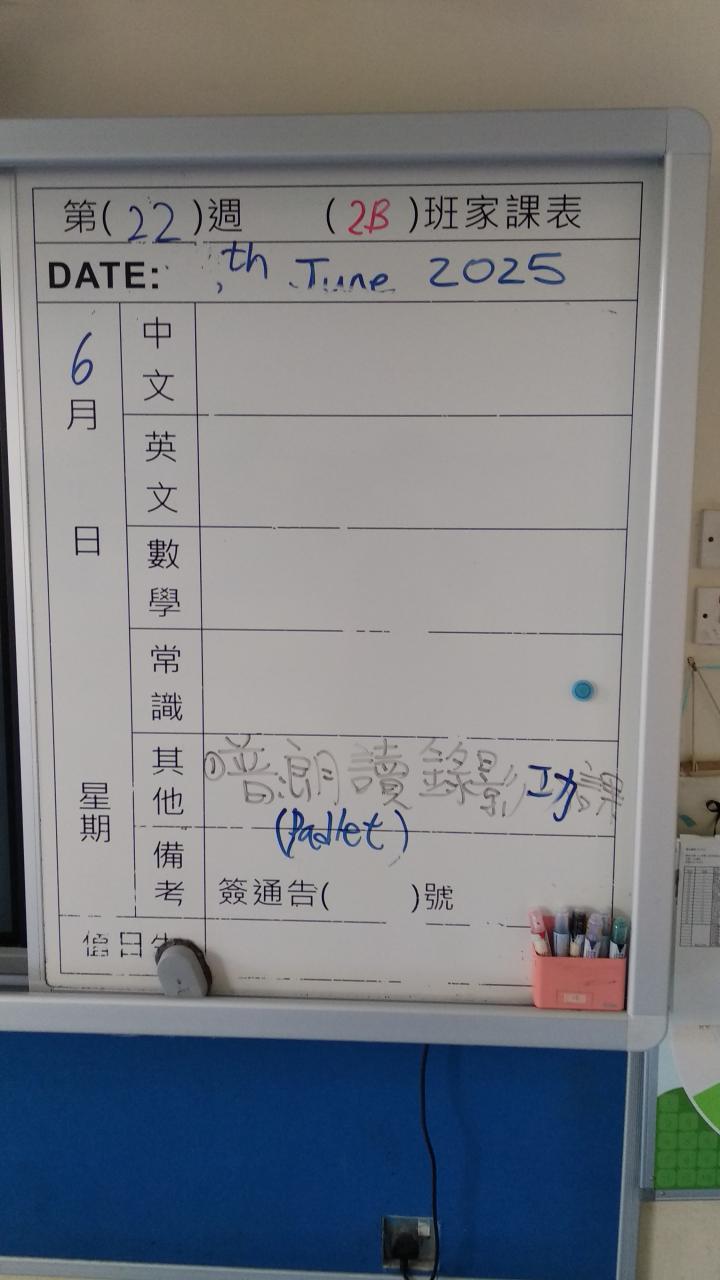 第(22)週 (2B)班家課表
DATE: th June 2025
6月 日 星期
中文
英文
數學
常識
其他 ①普朗讀錄影功課
(Padlet)
備考 簽通告( )號
值日生